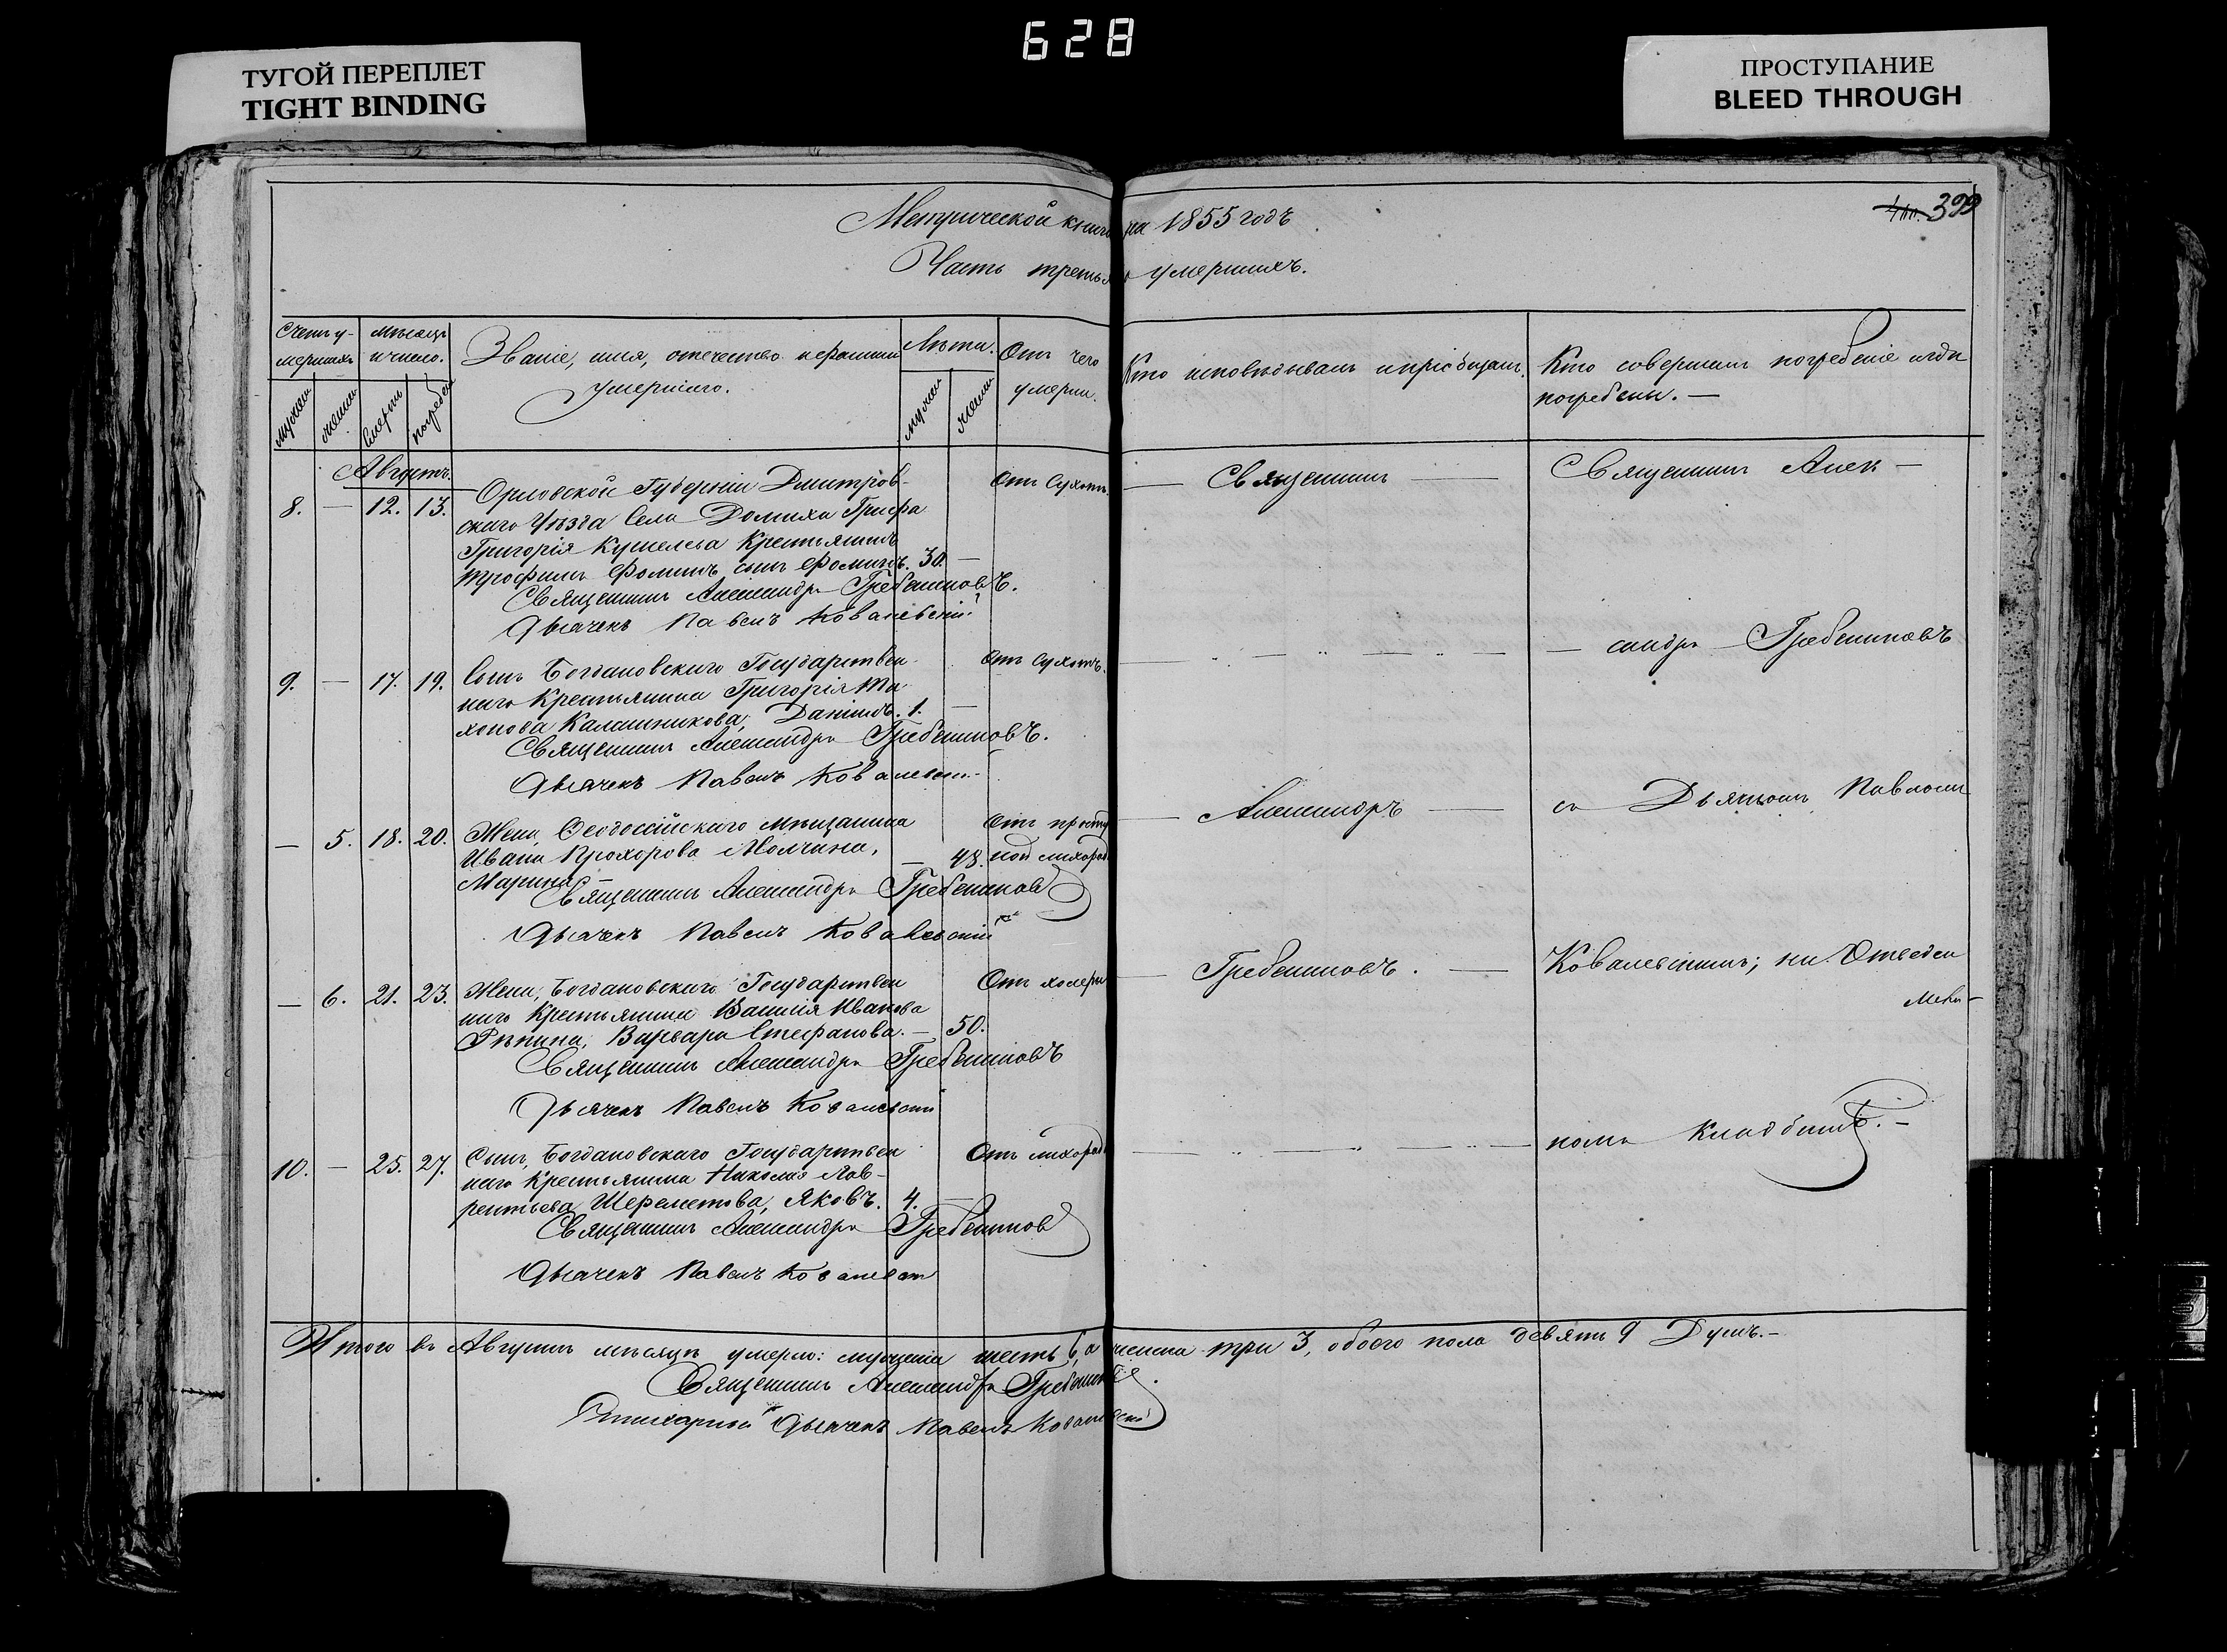 628
ТУГОЙ ПЕРЕПЛЕТ
TIGHT BINDING
ПРОСТУПАНИЕ
BLEED THROUGH
399
Метрической книги на 1855 годъ
Часть третья умершихъ.
Счетъ у-
мершихъ
мѣсяцъ
и число.
Званіе, имя, отчество и фамилія
умершаго.
Лѣта.
Отъ чего
умерли.
Кто исповѣдывалъ и пріобщалъ.
Кто совершалъ погребеніе и гдѣ
погребены. —
мужеск
женск
смерти
погребен
мужеск
женск
Августъ.
8. — 12. 13.
Орловской Губерніи Дмитров-
скаго Уѣзда Села Домаха Графа
Григорія Кушелева Крестьянинъ
Трофимъ Фоминъ сынъ Фоминъ. 30. —
Отъ Сухотъ.
Священникъ Александръ Гребенниковъ.
Дьячекъ Павелъ Ковалевскій
— Священникъ —
Священникъ Алек —
9. — 17. 19.
Сынъ Богдановскаго Государствен-
наго Крестьянина Григорія Ти-
хонова Калашникова, Даніилъ. 1. —
Отъ Сухотъ.
Священникъ Александръ Гребенниковъ.
Дьячекъ Павелъ Ковалевскій
— сандръ Гребенниковъ
— 5. 18. 20.
Жена, Ѳеодосійскаго мѣщанина
Ивана Прохорова Молчина,
Марина — 48.
Отъ простуд
ной лихорад
Священникъ Александръ Гребенниковъ
Дьячекъ Павелъ Ковалевскій
— Александръ —
съ Дьячкомъ Павломъ
— 6. 21. 23.
Жена, Богдановскаго Государствен
наго Крестьянина Василія Иванова
Рѣпина, Варвара Стефанова. — 50.
Отъ холеры
Священникъ Александръ Гребенниковъ
Дьячекъ Павелъ Ковалевскій
— Гребенниковъ. —
Ковалевскимъ; на Отведен
10. — 25. 27.
Сынъ, Богдановскаго Государствен
наго Крестьянина Николая Лав-
рентьева Шереметова, Яковъ. 4. —
Отъ лихорад
Священникъ Александръ Гребенниковъ
Дьячекъ Павелъ Ковалевскій
номъ Кладбищѣ. —
Итого въ Августѣ мѣсяцѣ умерло: мужеска шесть 6, а женска три 3, обоего пола девять 9 Душъ. —
Священникъ Александръ Гребенниковъ.
Стихарный Дьячекъ Павелъ Ковалевскій